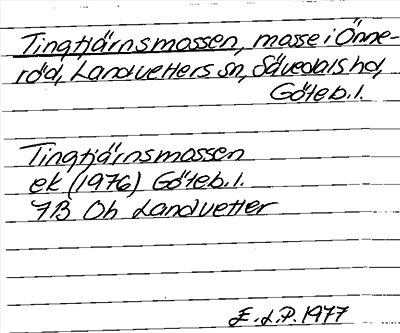 Tingtjärnsmossen, mosse i Önne-
röd, Landvetters sn, Sävedals hd,
Göteb.l.
Tingtjärnsmossen
ek (1976) Göteb.l.
7B Oh Landvetter
E.L.P. 1977